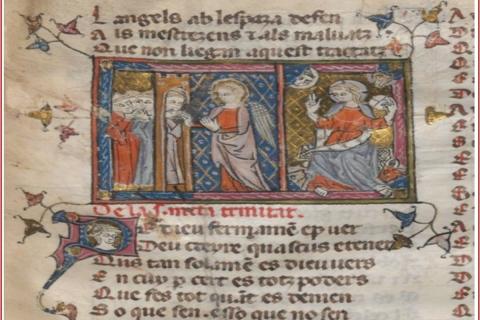 L angels ab lespaza defen
A ls mescrezens & als maluatz
Que non liegan aquest tractat
De la s. meta trinitat.
De dieu fermamē e p ver
Deu creyre quascus e tener
Qus tan solamē es dieu vers
E n cuy p cert es totz poders
Que fes tot quāt es de nien
S o que sen. e sso que no sen